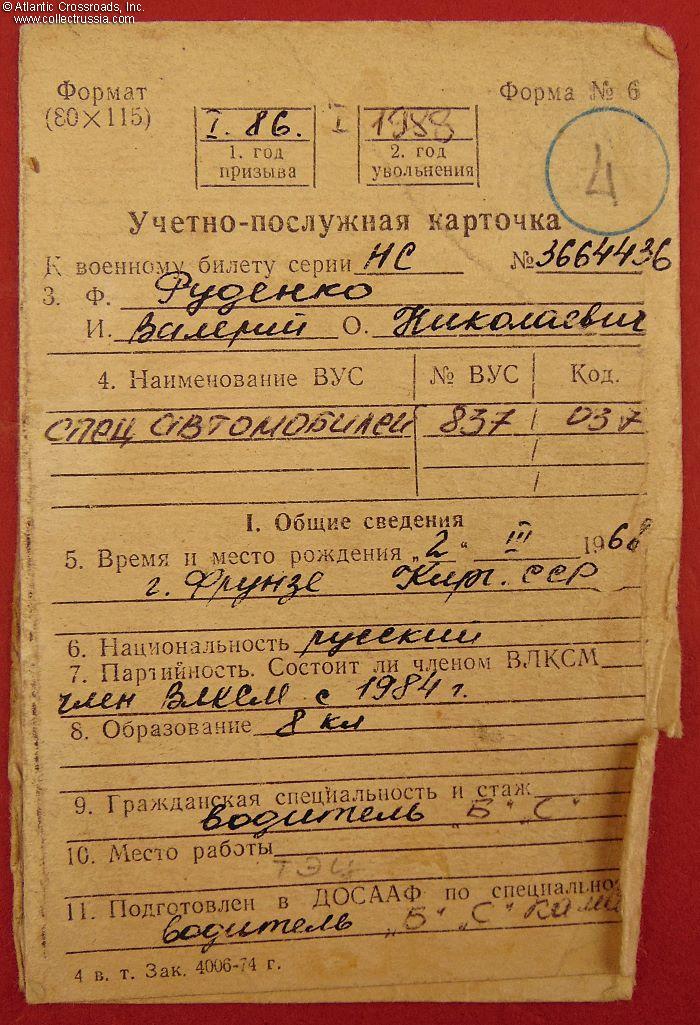 © Atlantic Crossroads, Inc.
www.collectrussia.com
Формат
(80×115)
Форма № 6
I. 86. I 1988
1. год призыва
2. год увольнения
4
Учетно-послужная карточка
К военному билету серии НС № 3664436
3. Ф. Руденко
И. Валерий О. Николаевич
4. Наименование ВУС № ВУС Код.
спец автомобилей 837 037
I. Общие сведения
5. Время и место рождения „2“ III 196
г. Фрунзе Кирг. ССР
6. Национальность русский
7. Партийность. Состоит ли членом ВЛКСМ
член ВЛКСМ с 1984 г.
8. Образование 8 кл
9. Гражданская специальность и стаж
водитель „Б“ „С“
10. Место работы
ТЭЦ
11. Подготовлен в ДОСААФ по специально
водитель „Б“ „С“
4 в. т. Зак. 4006-74 г.